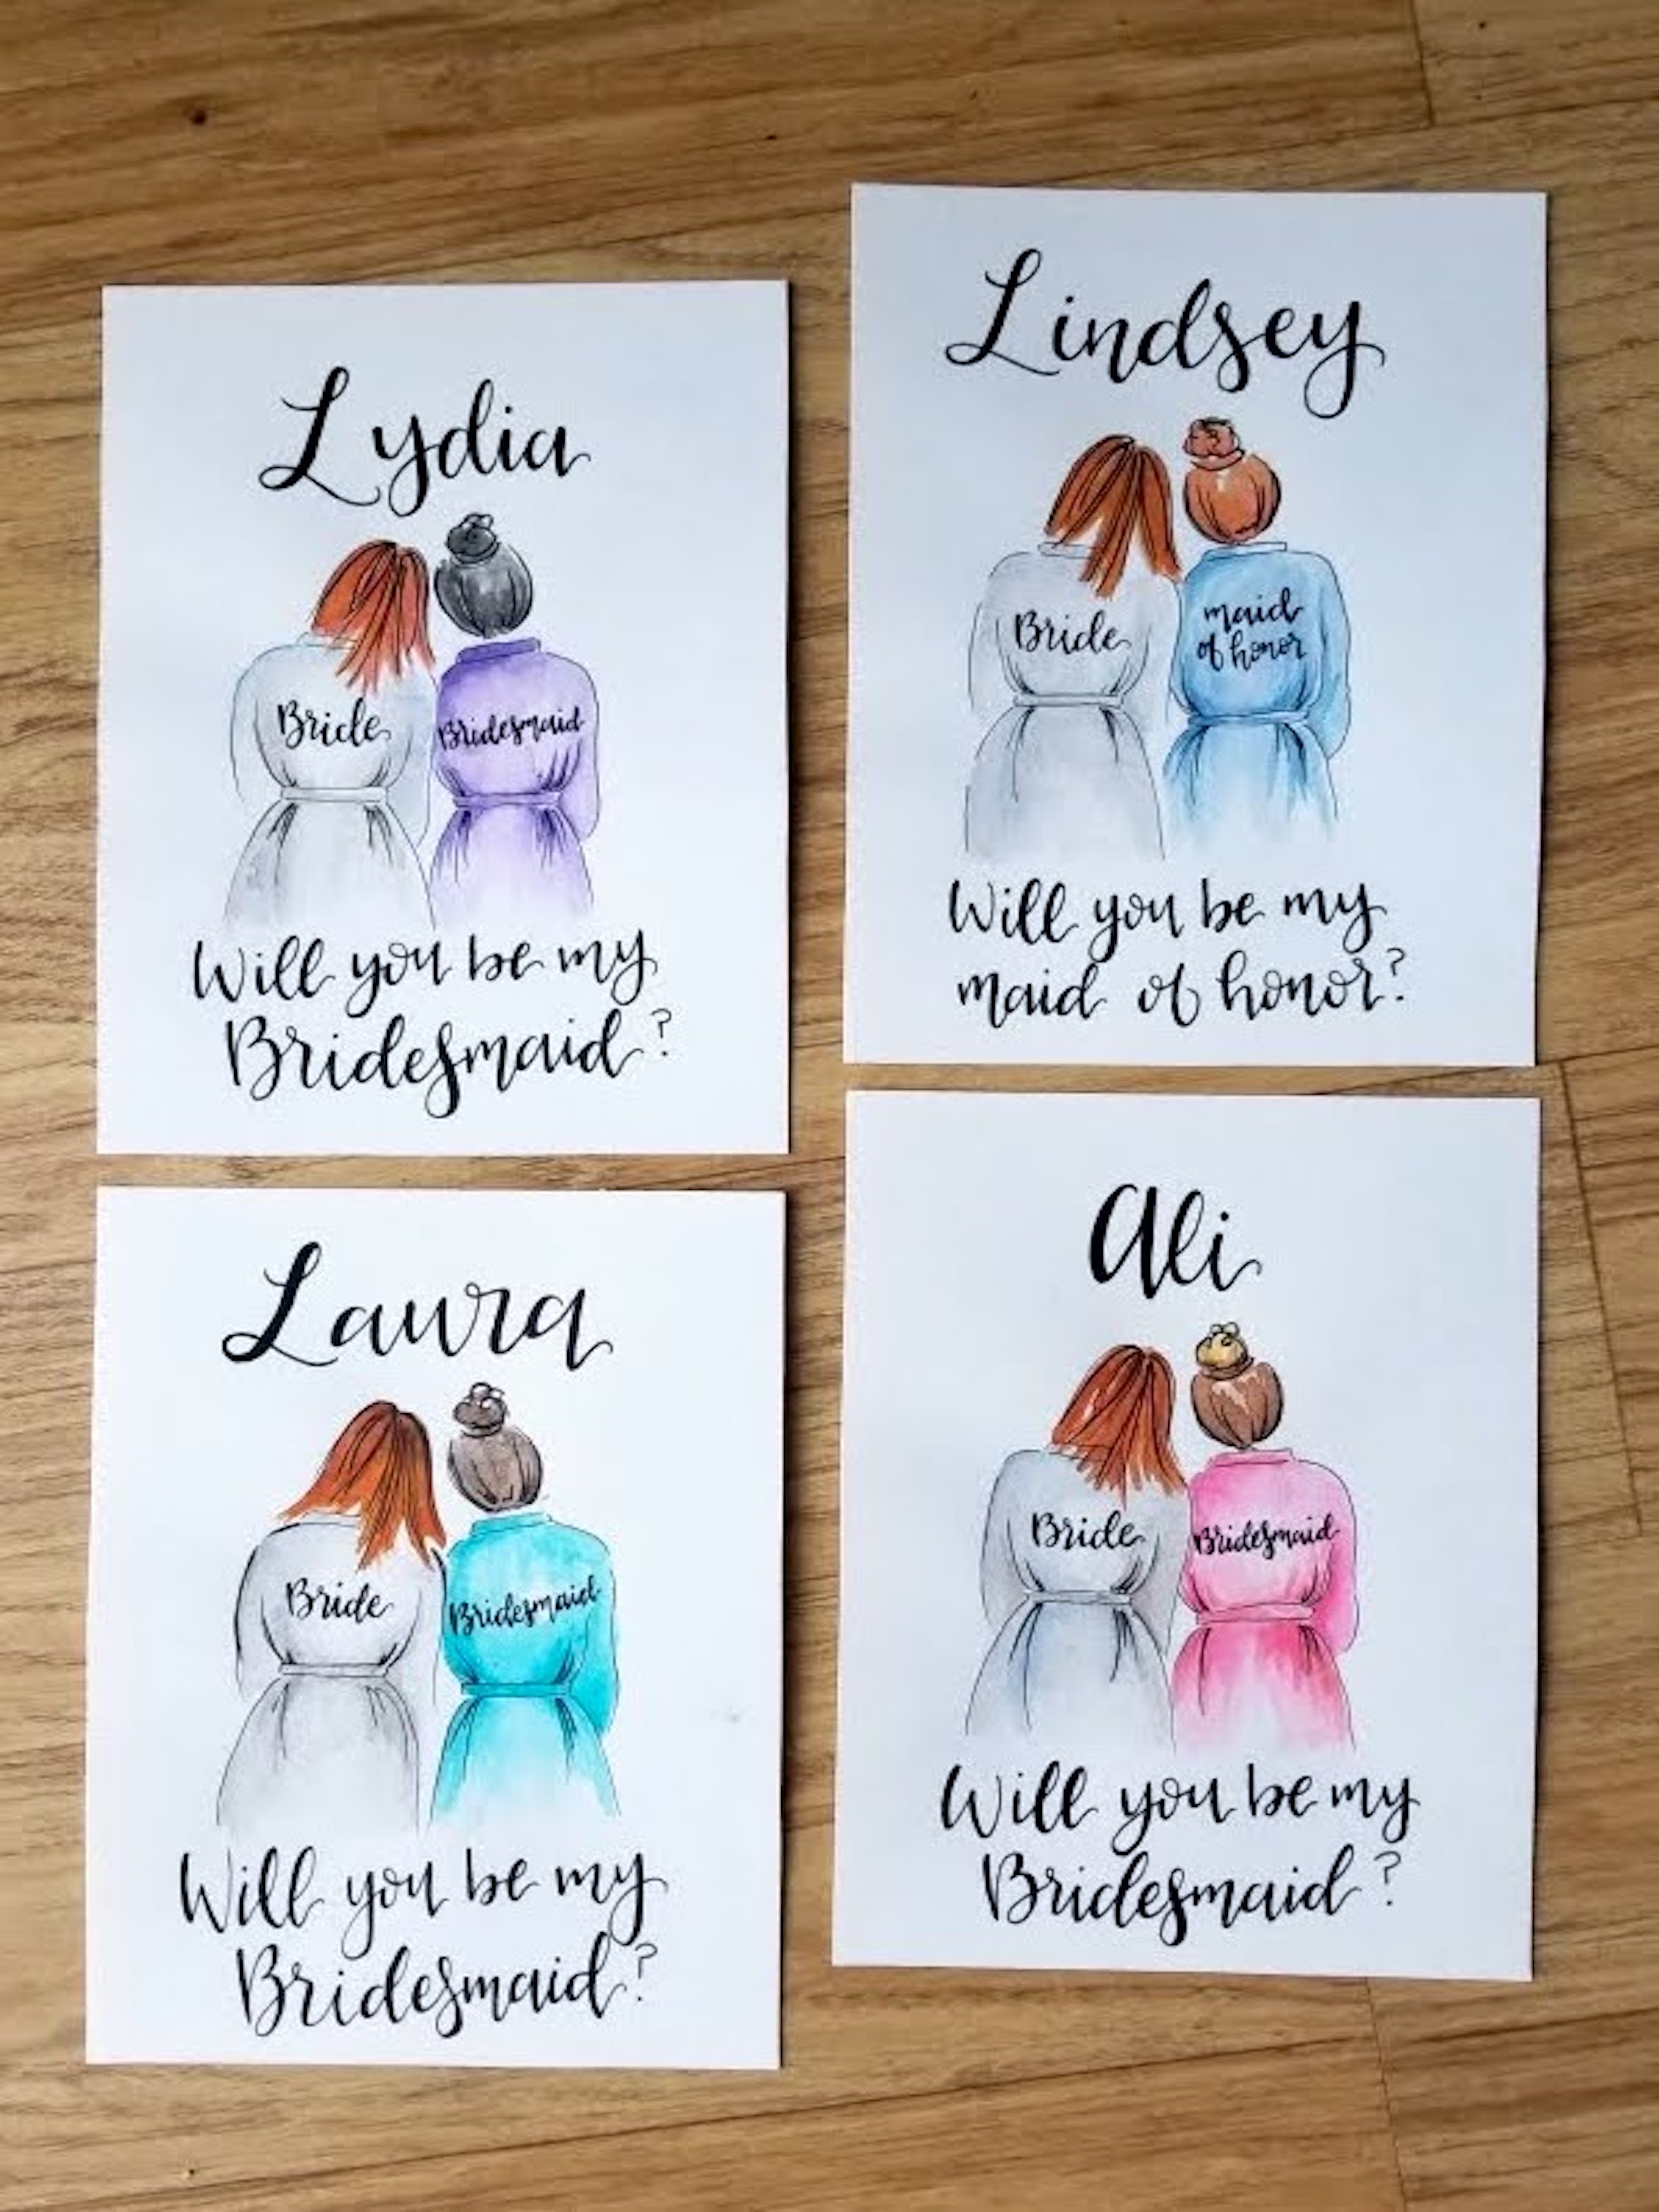 Lydia
Bride
Bridesmaid
Will you be my
Bridesmaid?
Lindsey
Bride
maid
of honor
Will you be my
maid of honor?
Laura
Bride
Bridesmaid
Will you be my
Bridesmaid?
Ali
Bride
Bridesmaid
Will you be my
Bridesmaid?